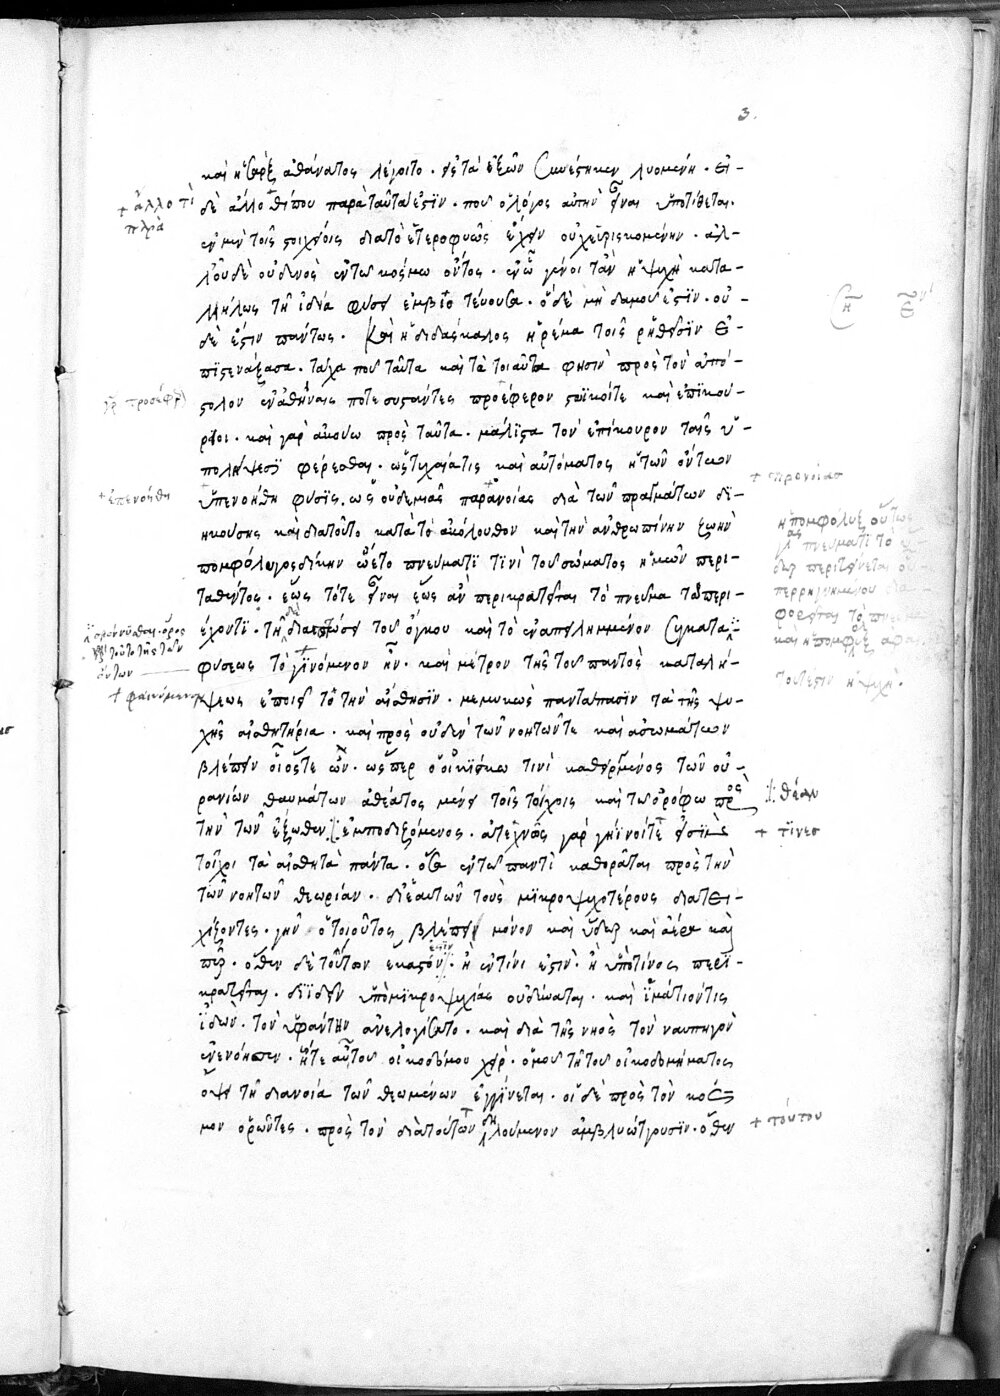 3.
καὶ ἡ σὰρξ ἀθάνατος λέγοιτο · εἰς τὰ ἐξ ὧν συνέστηκεν λυομένη · εἰ-
δὲ ἄλλο τί που παρὰ ταῦτα ἐστὶν · ποῦ ὁ λόγος αὐτὴν εἶναι ὑποτίθεται ·
ἐν μὲν τοῖς στοιχείοις διὰ τὸ ἑτεροφυῶς ἔχειν οὐχ εὑρισκομένην · ἀλ-
λου δὲ οὐδενὸς ἐν τῶ κόσμω ὄντος · ἐν ὧ γένοιτ᾽ ἂν ἡ ψυχὴ κατα-
λλήλως τῆ ἰδία φύσει ἐμβιοτεύουσα · ὁ δὲ μηδαμοῦ ἐστὶν · οὐ-
δὲ ἔστιν πάντως · καὶ ἡ διδάσκαλος ἠρέμα τοῖς ῥηθεῖσιν ἐ-
πιστενάξασα · τάχα που ταῦτα καὶ τὰ τοιαῦτα φησὶν πρὸς τὸν ἀπό-
στολον ἐν ἀθήναις ποτὲ συστάντες προέφερον στωϊκοί τε καὶ ἐπικού-
ρειοι · καὶ γὰρ ἀκούω πρὸς ταῦτα · μάλιστα τὸν ἐπίκουρον ταῖς ὑ-
πολήψεσι φέρεσθαι · ὡς τυχαία τις καὶ αὐτόματος ἡ τῶν ὄντων
ὑπενοήθη φύσις · ὡς οὐδεμιᾶς παρανοίας διὰ τῶν πραγμάτων δι-
ηκούσης καὶ διὰ τοῦτο κατὰ τὸ ἀκόλουθον καὶ τὴν ἀνθρωπίνην ζωὴν
πομφόλυγος δίκην ὤετο πνεύματί τινι τοῦ σώματος ἡμῶν περι-
ταθέντος · ἕως τότε εἶναι ἕως ἂν περικρατεῖται τὸ πνεῦμα τῶ περι-
έχοντι · τῆ δὲ διαπτώσει τοῦ ὄγκου καὶ τὸ ἐναπειλημμένον συγκατα-
φύσεως τὸ γινόμενον ἦν · καὶ μέτρον τῆς τοῦ παντὸς καταλή-
ψεως ἐποιεῖτο τὴν αἴσθησιν · μεμυκὼς παντάπασιν τὰ τῆς ψυ-
χῆς αἰσθητήρια · καὶ πρὸς οὐδὲν τῶν νοητῶν τε καὶ ἀσωμάτων
βλέπειν οἷός τε ὤν · ὥσπερ ὁ οἰκίσκω τινὶ καθειργμένος τῶν οὐ-
ρανίων θαυμάτων ἀθέατος μένει τοῖς τοίχοις καὶ τῶ ὀρόφω πρὸς
τὴν τῶν ἔξωθεν ἐμποδιζόμενος · ἀτεχνῶς γὰρ γήϊνοί τε εἰσὶ
τοῖχοι τὰ αἰσθητὰ πάντα · ὅσα ἐν τῶ παντὶ καθορᾶται πρὸς τὴν
τῶν νοητῶν θεωρίαν · δι᾽ ἑαυτῶν τοὺς μικροψυχοτέρους διατει-
χίζοντες · γῆν ὁ τοιοῦτος βλέπει μόνον καὶ ὕδωρ καὶ ἀέρα καὶ
πῦρ · ὅθεν δὲ τούτων ἕκαστόν · ἢ ἐν τίνι ἐστὶν · ἢ ὑπό τινος περι-
κρατεῖται · διϊδεῖν ὑπὸ μικροψυχίας οὐ δύναται · καὶ ἱμάτιον τίς
ἰδὼν · τὸν ὑφάντην ἀνελογίσατο · καὶ διὰ τῆς νηὸς τὸν ναυπηγὸν
ἐνενόησεν · ἥ τε αὖ τοῦ οἰκοδόμου χεὶρ · ὁμοῦ τῆ τοῦ οἰκοδομήματος
ὄψει τῆ διανοία τῶν θεωμένων ἐγγίνεται · οἱ δὲ πρὸς τὸν κόσ-
μον ὁρῶντες · πρὸς τὸν διὰ τούτων δηλούμενον ἀμβλυώττουσιν · ὅθεν
+ ἄλλο τὶ
παρὰ
γρ προσέφερ
+ ἐπενοήθη
ὄντων
+ φαινόμενον
+ προνοίας
ἡ πομφόλυξ οὕτως
τουτέστιν ἡ ψυχή ·
θέαν
+ τινες
+ τούτου